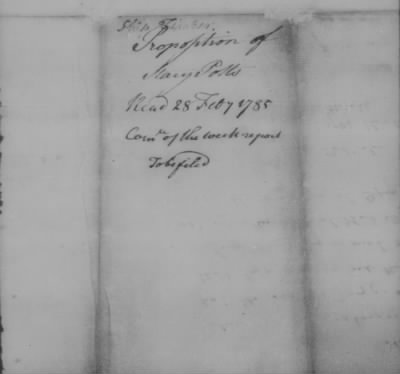 Proposition of
Stacy Potts
Read 28 Feby 1785
Comee of the week report
To be filed